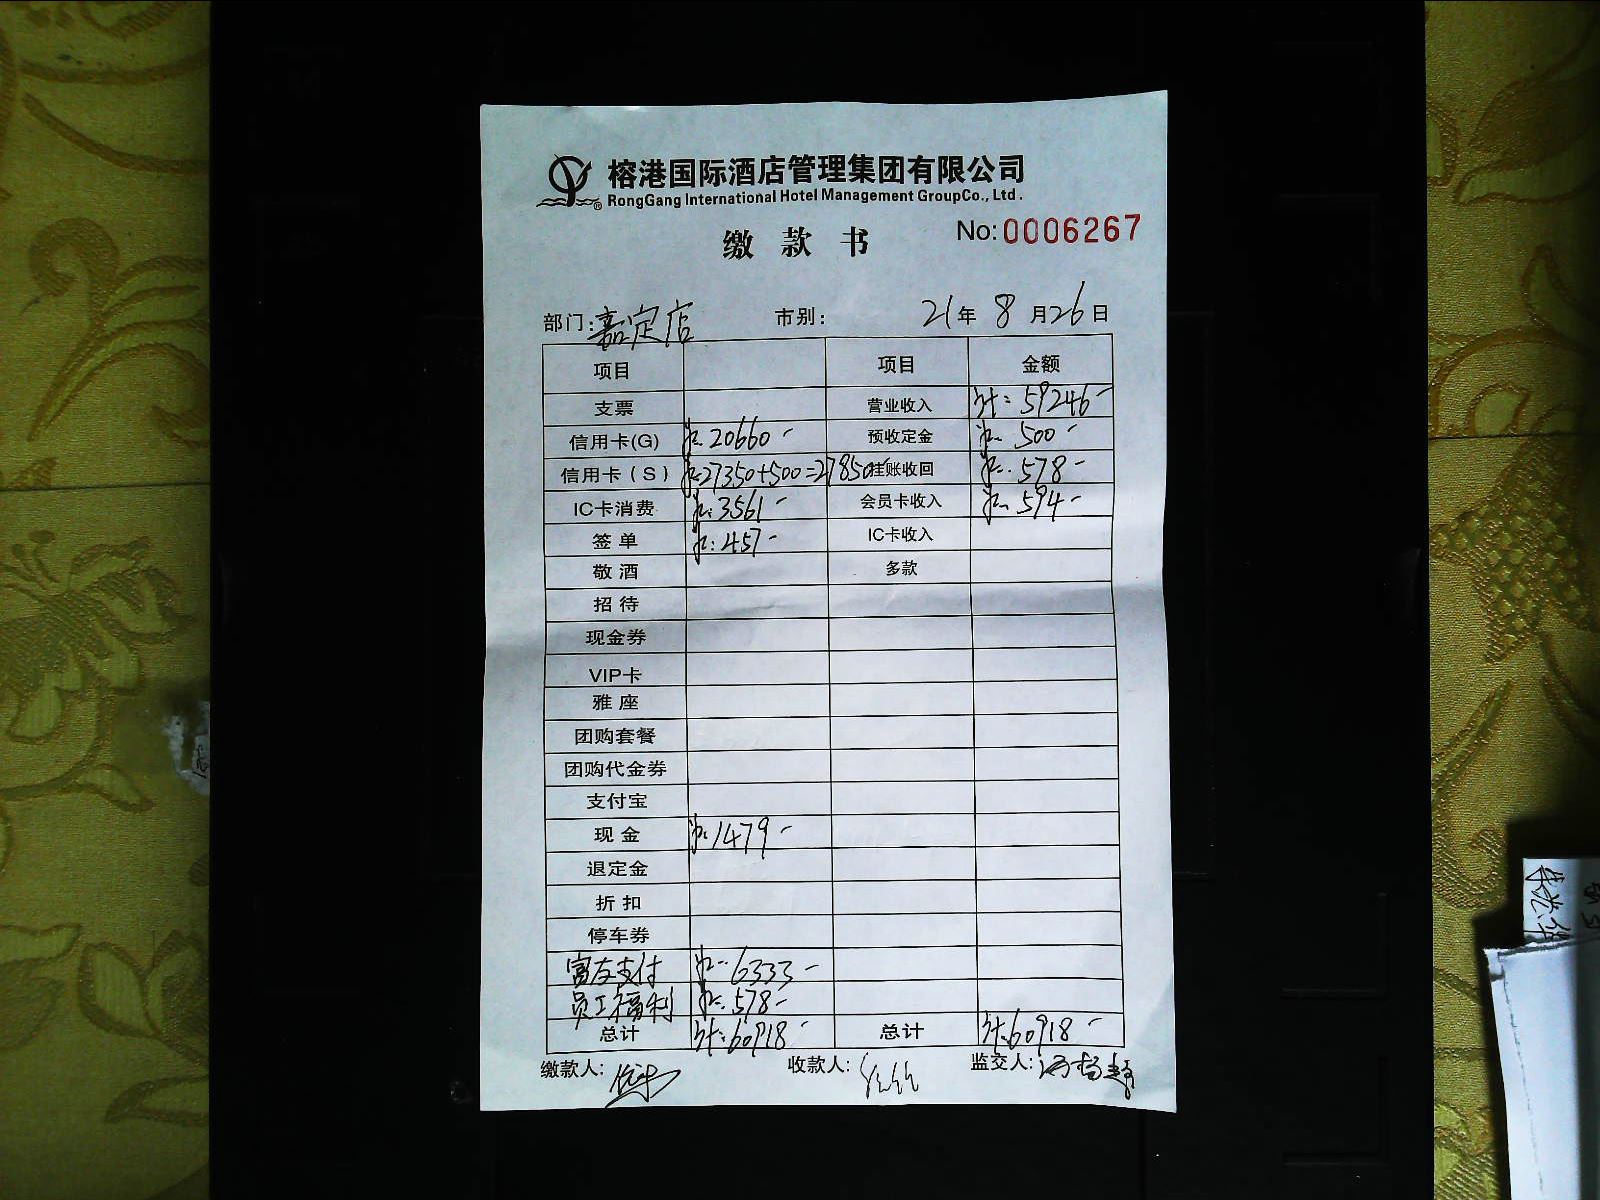 榕港国际酒店管理集团有限公司
RongGang International Hotel Management GroupCo., Ltd.
No:0006267
缴款书
部门:嘉定店 市别: 21年 8月26日
项目 项目 金额
支票 营业收入 计: 59246-
信用卡(G) 20660- 预收定金 500-
信用卡(S) 27350+500=27850- 挂账收回 578-
IC卡消费 3561- 会员卡收入 594-
签单 457- IC卡收入
敬酒 多款
招待
现金券
VIP卡
雅座
团购套餐
团购代金券
支付宝
现金 1479-
退定金
折扣
停车券
富友支付 6333-
员工福利 578-
总计 计:60918- 总计 计:60918-
缴款人: 收款人: 监交人: